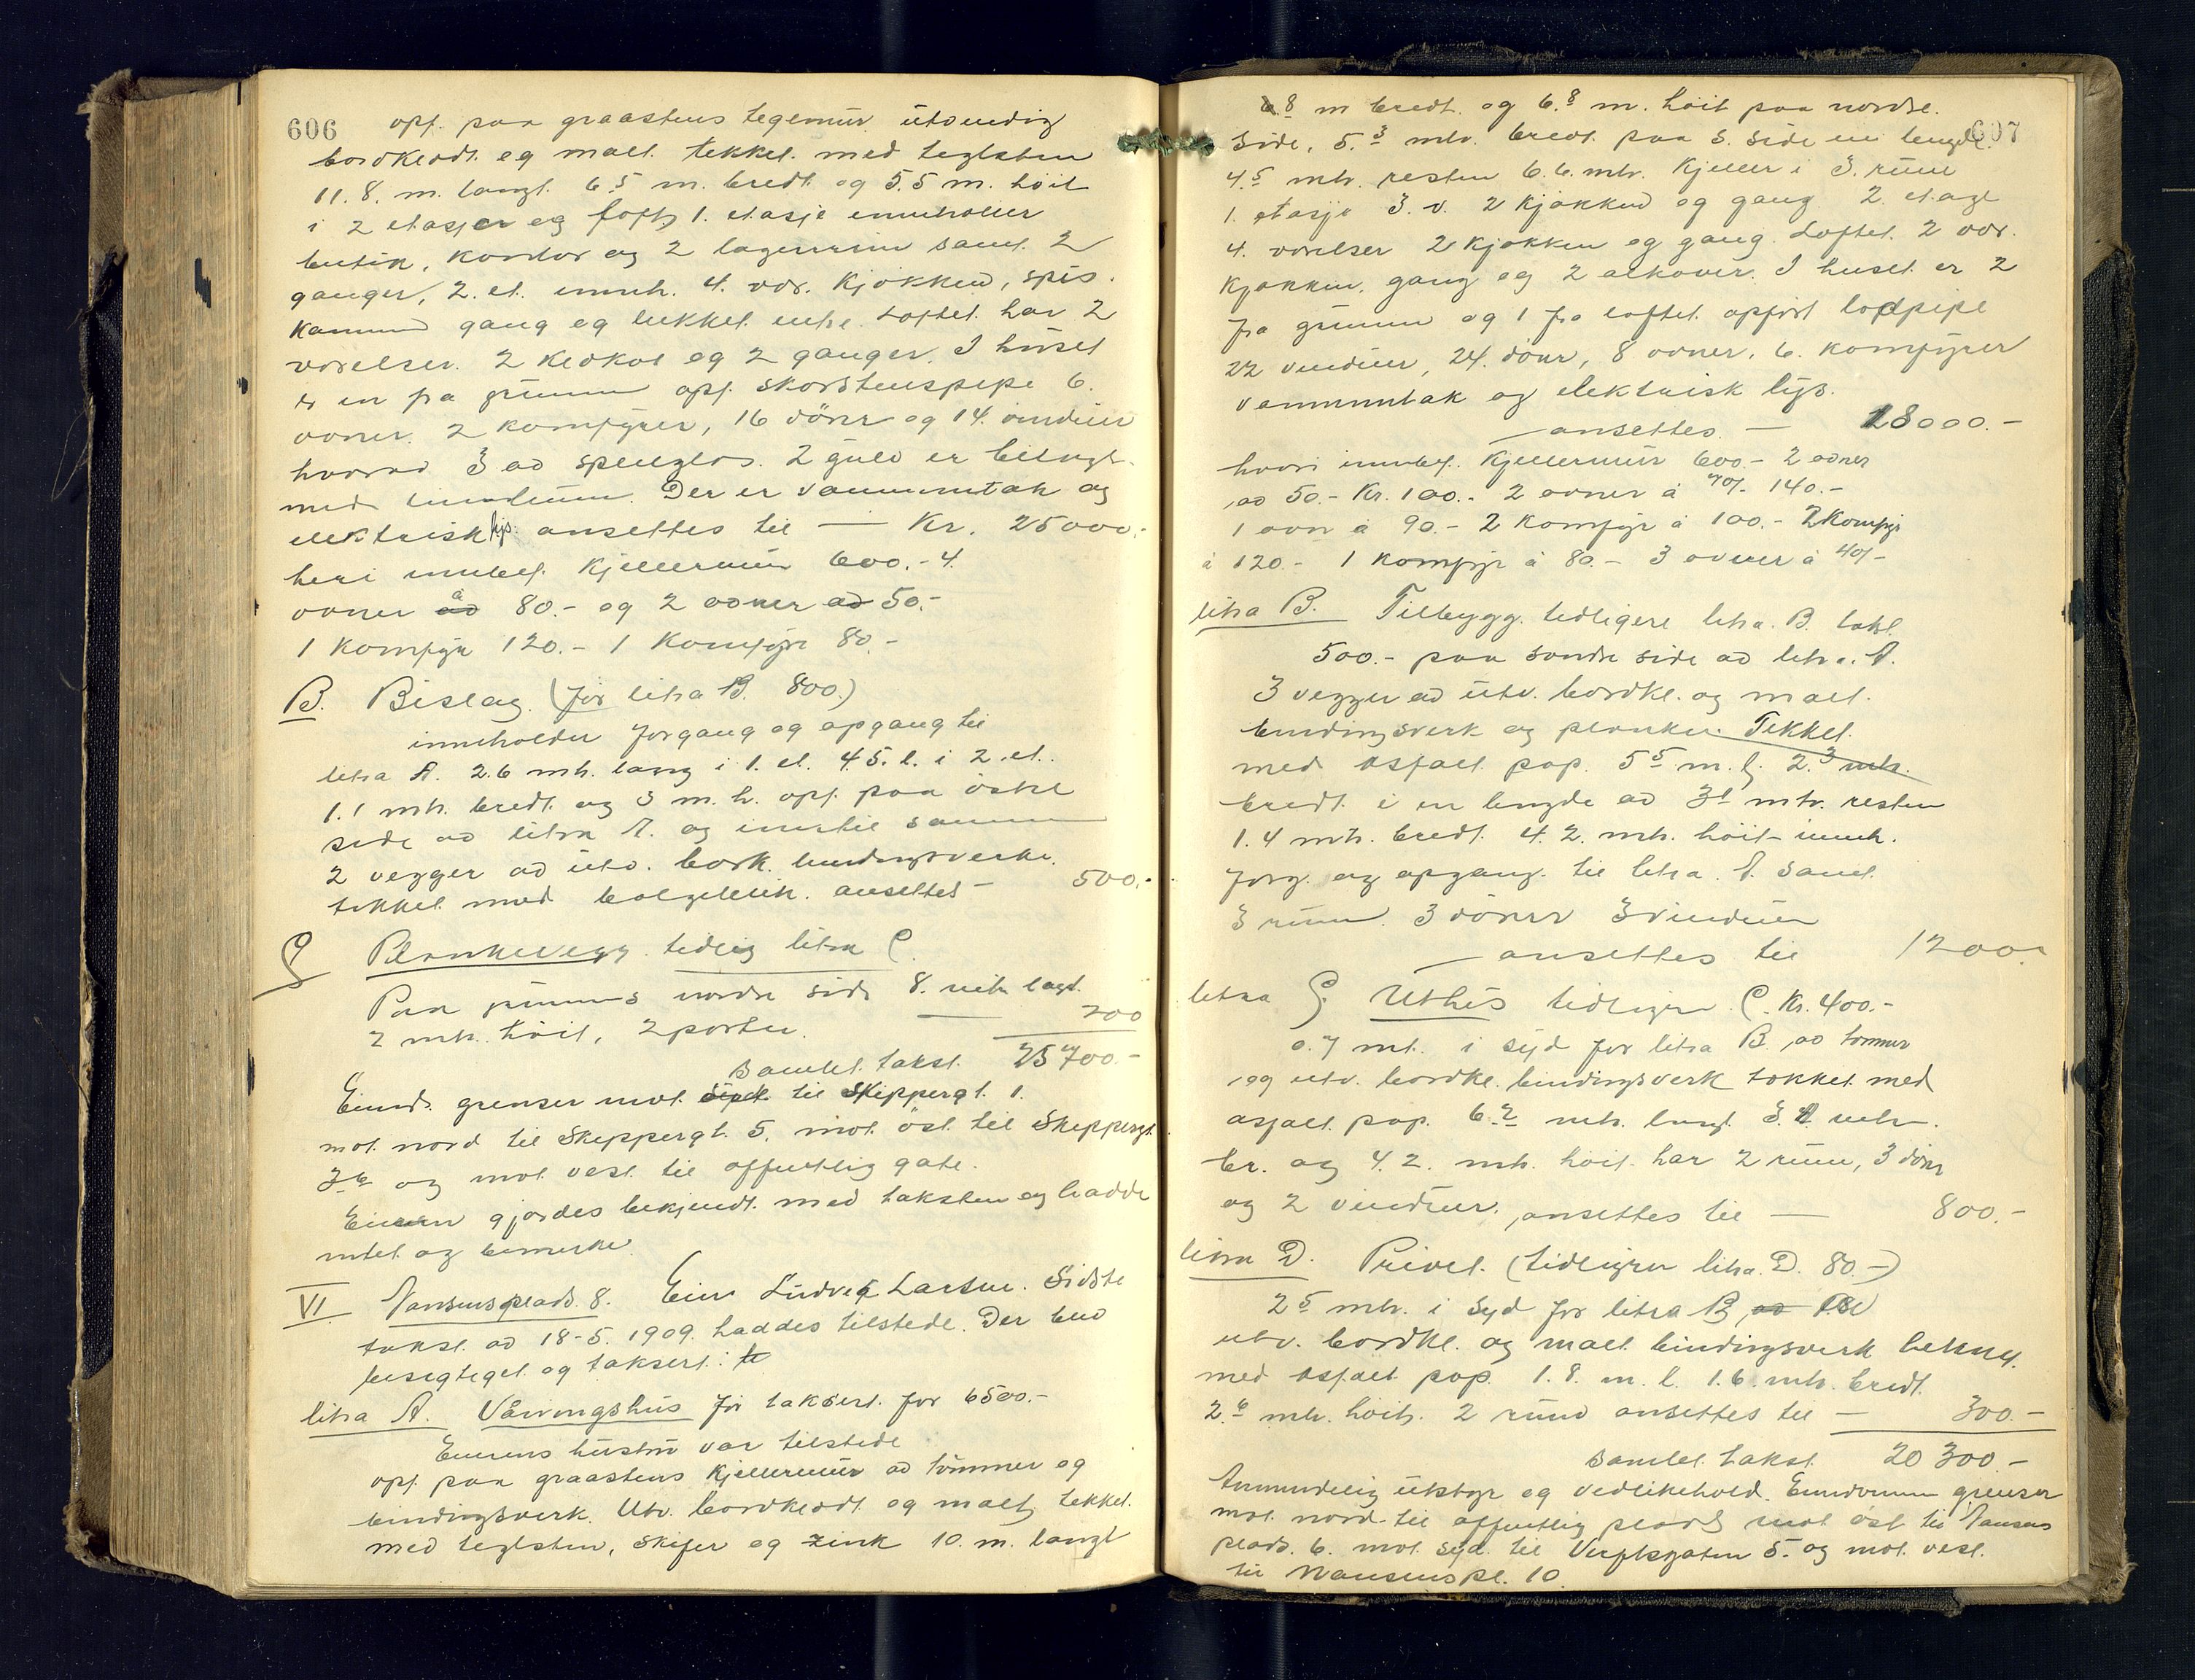 606
opf. paa graastens tegemur. utvendig
bordkledt. og malt. tekket. med teglsten
11.8. m. langt. 6 5 m. bredt. og 5.5 m. höit
i 2 etasjer og loft, 1. etasje inneholder
butik, kontor og 2 lagerrum samt. 2
ganger, 2. et. inneh. 4. vær. Kjökken, spis.
kammer gang og lukket entre. Loftet. har 2
værelser. 2 Kledkot og 2 ganger. I huset
er en fra grunnen opf. skorstenspipe 6.
ovner. 2 komfyrer, 16 dörer og 14. vinduer
hvorav 3 av speilglas. 2 gulv er belagt.
med linoleum. Der er vannuntak og
elektrisk lys. ansettes til — Kr. 25000.-
heri innbef. Kjellermur 600.- 4.
ovner à 80.- og 2 ovner ad 50.-
1 Komfyr 120.- 1 Komfyr 80.-
B. Bislag. (för litra B. 800.)
inneholder forgang og opgang til
litra A. 2.6 mtr. lang i 1. et. 4.5. l. i 2. et..
1.1 mtr. bredt. og 3 m. h. opf. paa östre
side av litra A. og inntil samme
2 vegger av utv. bordk. bindingsverk.
tekket med bolgeblik. ansettes - 500.-
C Plankevegg tidlig litra C.
Paa grunnens nordre side 8. mtr. langt.
2 mtr. höit, 2 porter. 200
samlet. takst. 25 700.-
Eiend. grenser mot. syd. til Skippergt. 1.
mot. nord til Skippergt. 5. mot. öst. til Skippergt.
3 b og mot vest. til offentlig gate.
Eieren gjordes bekjendt. med taksten og hadde
intet og bemerke.
VI Nansensplads. 8. Eier Ludvig Larsen. Sidste
takst. av 18-5. 1909. haddes tilstede. Der blev
besigtiget og taksert:
litra A. Våningshus för taksert. for 6500.-
Eierens hustru var tilstede
opf. paa graastens Kjellermur av tömmer og
bindingsverk. Utv. bordkledt. og malt, tekket.
med teglsten, skifer og zink 10. m. langt
607
6 8 m bredt. og 6.8 m. höit paa nordre.
Side, 5.3 mtr. bredt. paa s. side en lengde.
4.5 mtr. resten 6.6. mtr. Kjeller i 3. rum
1. etasje 3. v. 2 kjökken og gang 2. etage
4. værelser 2 Kjökken og gang. Loftet. 2 vær.
Kjökken. gang og 2 alkover. I huset. er 2
fra grunnen og 1 fra loftet. opfört lodpipe
22 vinduer, 24. dörer, 8 ovner, 6. komfyrer
vannuntak og elektrisk lys.
ansettes. — 18000.-
hvori innbef. Kjellermur 600.- 2 ovner
av 50.- Kr. 100.- 2 ovner à 70/- 140.-
1 ovn à 90.- 2 Komfyr à 100.- 2 Komfyr
à 120.- 1 Komfyr à 80.- 3 ovner à 40/-
litra B. Tilbygg. tidligere litra. B. takst.
500.- paa söndre side av litra. A.
3 vegger av utv. bordkl. og malt.
bindingsverk og planker. Tekket.
med asfalt pap. 5 5 m. l. 2.3 mtr.
bredt. i en lengde av 3.1 mtr. resten
1.4 mtr. bredt. 4.2. mtr. höit inneh.
forg. og opgang. til litra. A. samt.
3 rum. 3 dörer 3 vinduer
ansettes til 1200.-
litra C. Uthus tidligere C. Kr. 400.-
0.7 mt. i syd for litra B. av tömmer
og utv. bordkl. bindingsverk tekket med
asfalt. pap. 6.2 mtr. langt 3.4 mtr.
br. og 4.2. mtr. höit. har 2 rum, 3 dörer
og 2 vinduer. ansettes til — 800.-
litra D. Privet. (tidligere litra. D. 80.-)
2 5 mtr. i syd for litra B av
utv. bordkl. og malt. bindingsverk tekket.
med asfalt pap. 1.8. m. l. 1.6. mtr. bredt.
2.6 mtr. höit. 2 rum ansettes til — 300.-
samlet. takst. 20 300.-
Almindelig utstyr og vedlikehold. Eiendommen grenser
mot. nord til offentlig plads mot öst til Nansens
plads. 6. mot. syd. til Verftsgaten 5. og mot. vest.
til Nansens pl. 10.